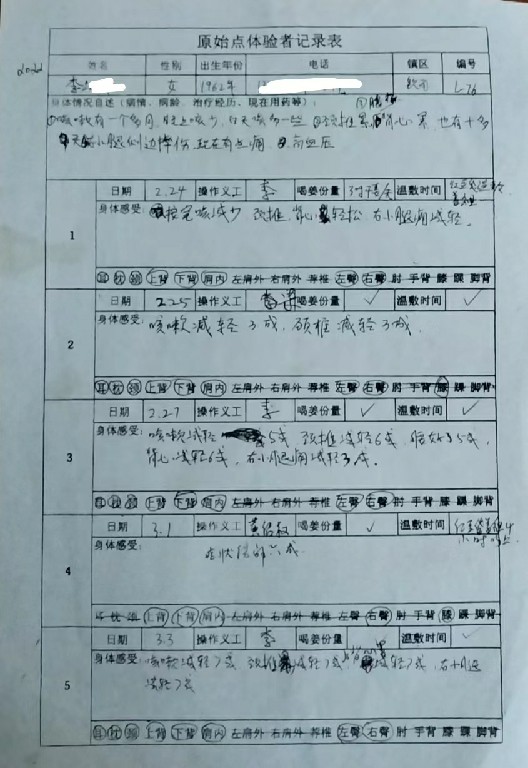 原始点体验者记录表
姓名 性别 出生年份 电话 镇区 编号
李 女 1962年 L-76
身体情况自述（病情、病龄、治疗经历、现在用药等）：
咳嗽有一个多月，晚上咳少，白天咳多一些 颈椎累 背心累，也有十多
年 右小腿侧边 现在有点痛
1
日期 2.24 操作义工 李 喝姜份量 温敷时间
身体感受： 按完咳减少 颈椎、背心轻松 右小腿痛减轻．
耳 枕 颈 上背 下背 肩内 左肩外 右肩外 荐椎 左臀 右臀 肘 手背 膝 踝 脚背
2
日期 2.25 操作义工 喝姜份量 ✓ 温敷时间 ✓
身体感受： 咳嗽减轻3成，颈椎减轻3成．
耳 枕 颈 上背 下背 肩内 左肩外 右肩外 荐椎 左臀 右臀 肘 手背 膝 踝 脚背
3
日期 2.27 操作义工 李 喝姜份量 ✓ 温敷时间 ✓
身体感受： 咳嗽减轻 5成 颈椎减轻6成， 5成，
背心减轻6成，右小腿痛减轻3成．
耳 枕 颈 上背 下背 肩内 左肩外 右肩外 荐椎 左臀 右臀 肘 手背 膝 踝 脚背
4
日期 3.1 操作义工 喝姜份量 ✓ 温敷时间
身体感受： 症状 六成
耳 枕 颈 上背 下背 肩内 左肩外 右肩外 荐椎 左臀 右臀 肘 手背 膝 踝 脚背
5
日期 3.3 操作义工 李 喝姜份量 温敷时间 ✓
身体感受： 咳嗽减轻7成，颈椎减轻7成 减轻7成，右小腿
减轻7成
耳 枕 颈 上背 下背 肩内 左肩外 右肩外 荐椎 左臀 右臀 肘 手背 膝 踝 脚背